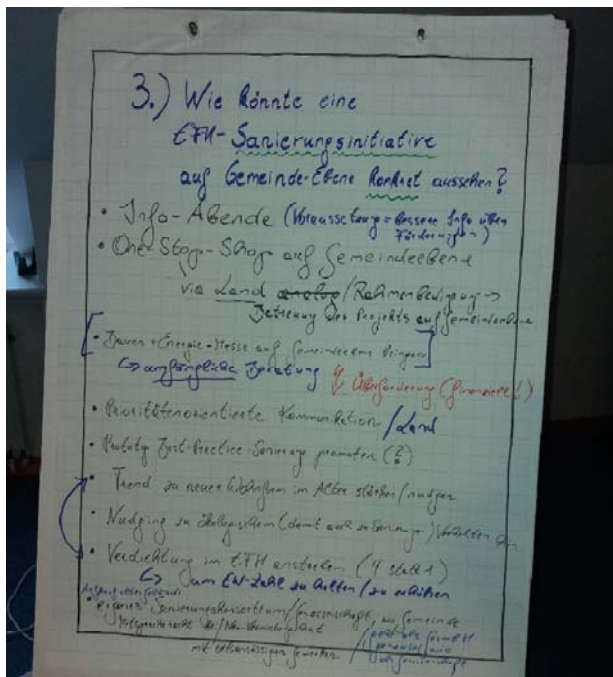 3.) Wie könnte eine
EFH-Sanierungsinitiative
auf Gemeinde-Ebene konkret aussehen?
• Info-Abende (Voraussetzung = bessere Info über
Förderungen)
• One-Stop-Shop auf Gemeindeebene
via Land analog/Rahmenbedingung →
Betreuung des Projekts auf Gemeindeebene
[• Bauen + Energie-Messe auf Gemeindeebene bringen]
↳ anfängliche Beratung
↯ Überforderung (finanziell!)
• Prioritätenorientierte Kommunikation /Land
• Prototyp Best-Practice-Sanierung promoten (?)
• Trend zu neuen Wohnform im Alter stärken/nutzen
• Nudging zu ökologischem (damit auch zu Sanierungs-) Verhalten
• Verdichtung im EFH anstreben (4 statt 1)
↳ um EW-Zahl zu halten / zu erhöhen
• Eigenes Sanierungskonsortium/Genossenschaft, wo Gemeinde
Mitspracherecht
mit ortsansässigen Gewerben
/ als GmbH